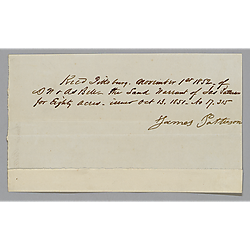 Rec'd Pittsburg. November 1st 1852, of
D W & A S Bell the Land Warrant of Jas Patterson
for Eighty acres. issued Oct 13. 1851. No 17.315
James Patterson